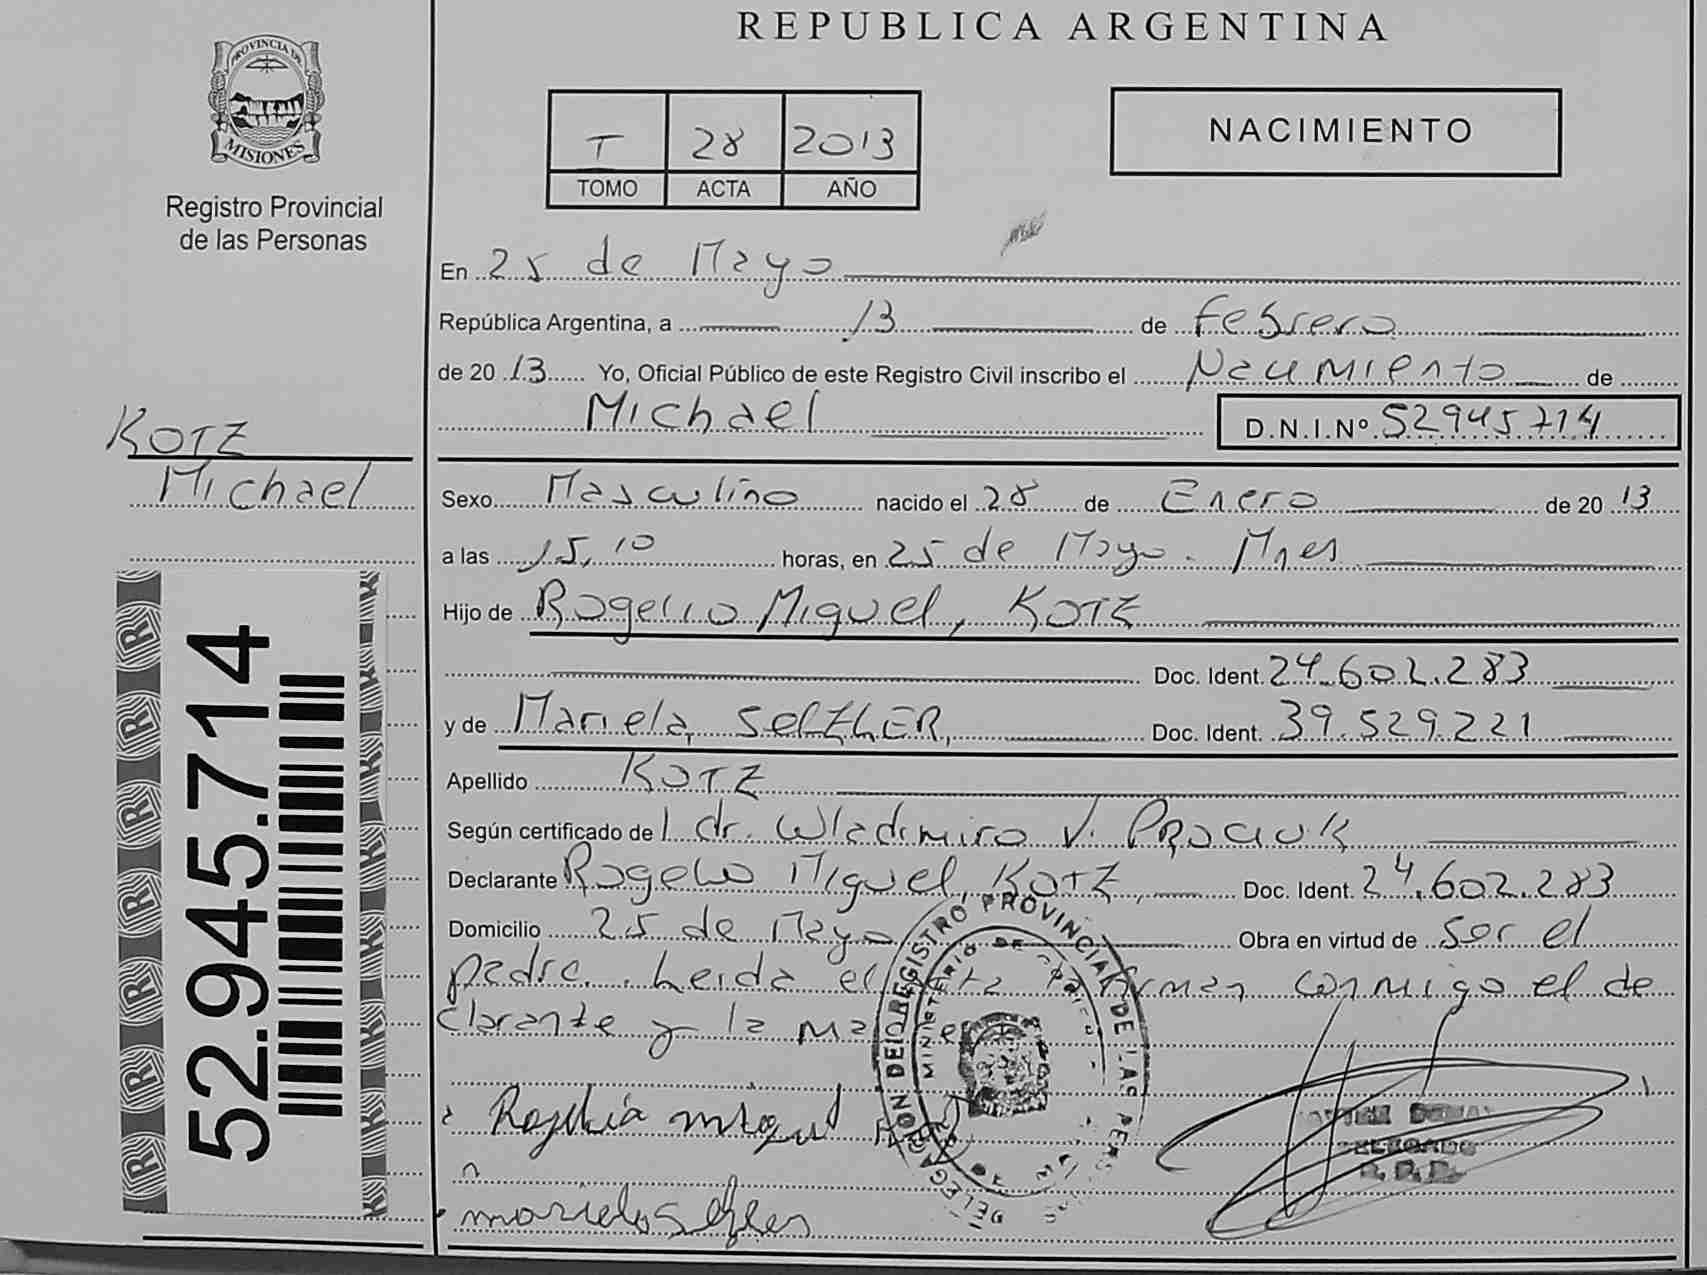 PROVINCIA DE
MISIONES
Registro Provincial
de las Personas
KOTZ
Michael
52.945.714
REPUBLICA ARGENTINA
T 28 2013
TOMO ACTA AÑO
NACIMIENTO
En 25 de Mayo
República Argentina, a 13 de Febrero
de 20 13 Yo, Oficial Público de este Registro Civil inscribo el Nacimiento de
Michael D.N.I.Nº 52945714
Sexo Masculino nacido el 28 de Enero de 20 13
a las 15,10 horas, en 25 de Mayo. Mnes
Hijo de Rogelio Miguel, KOTZ
Doc. Ident. 24.602.283
y de Mariela, SelzLER, Doc. Ident. 39.529.221
Apellido KOTZ
Según certificado de l dr. Wladimiro V. PROCIUK
Declarante Rogelio Miguel, KOTZ, Doc. Ident. 24.602.283
Domicilio 25 de Mayo Obra en virtud de Ser el
padre. Leida el acta la firman conmigo el de
clarante y la madre
DELEGACION DEL REGISTRO PROVINCIAL DE LAS PERSONAS
MINISTERIO DE
DELEGADO
R.P.P.